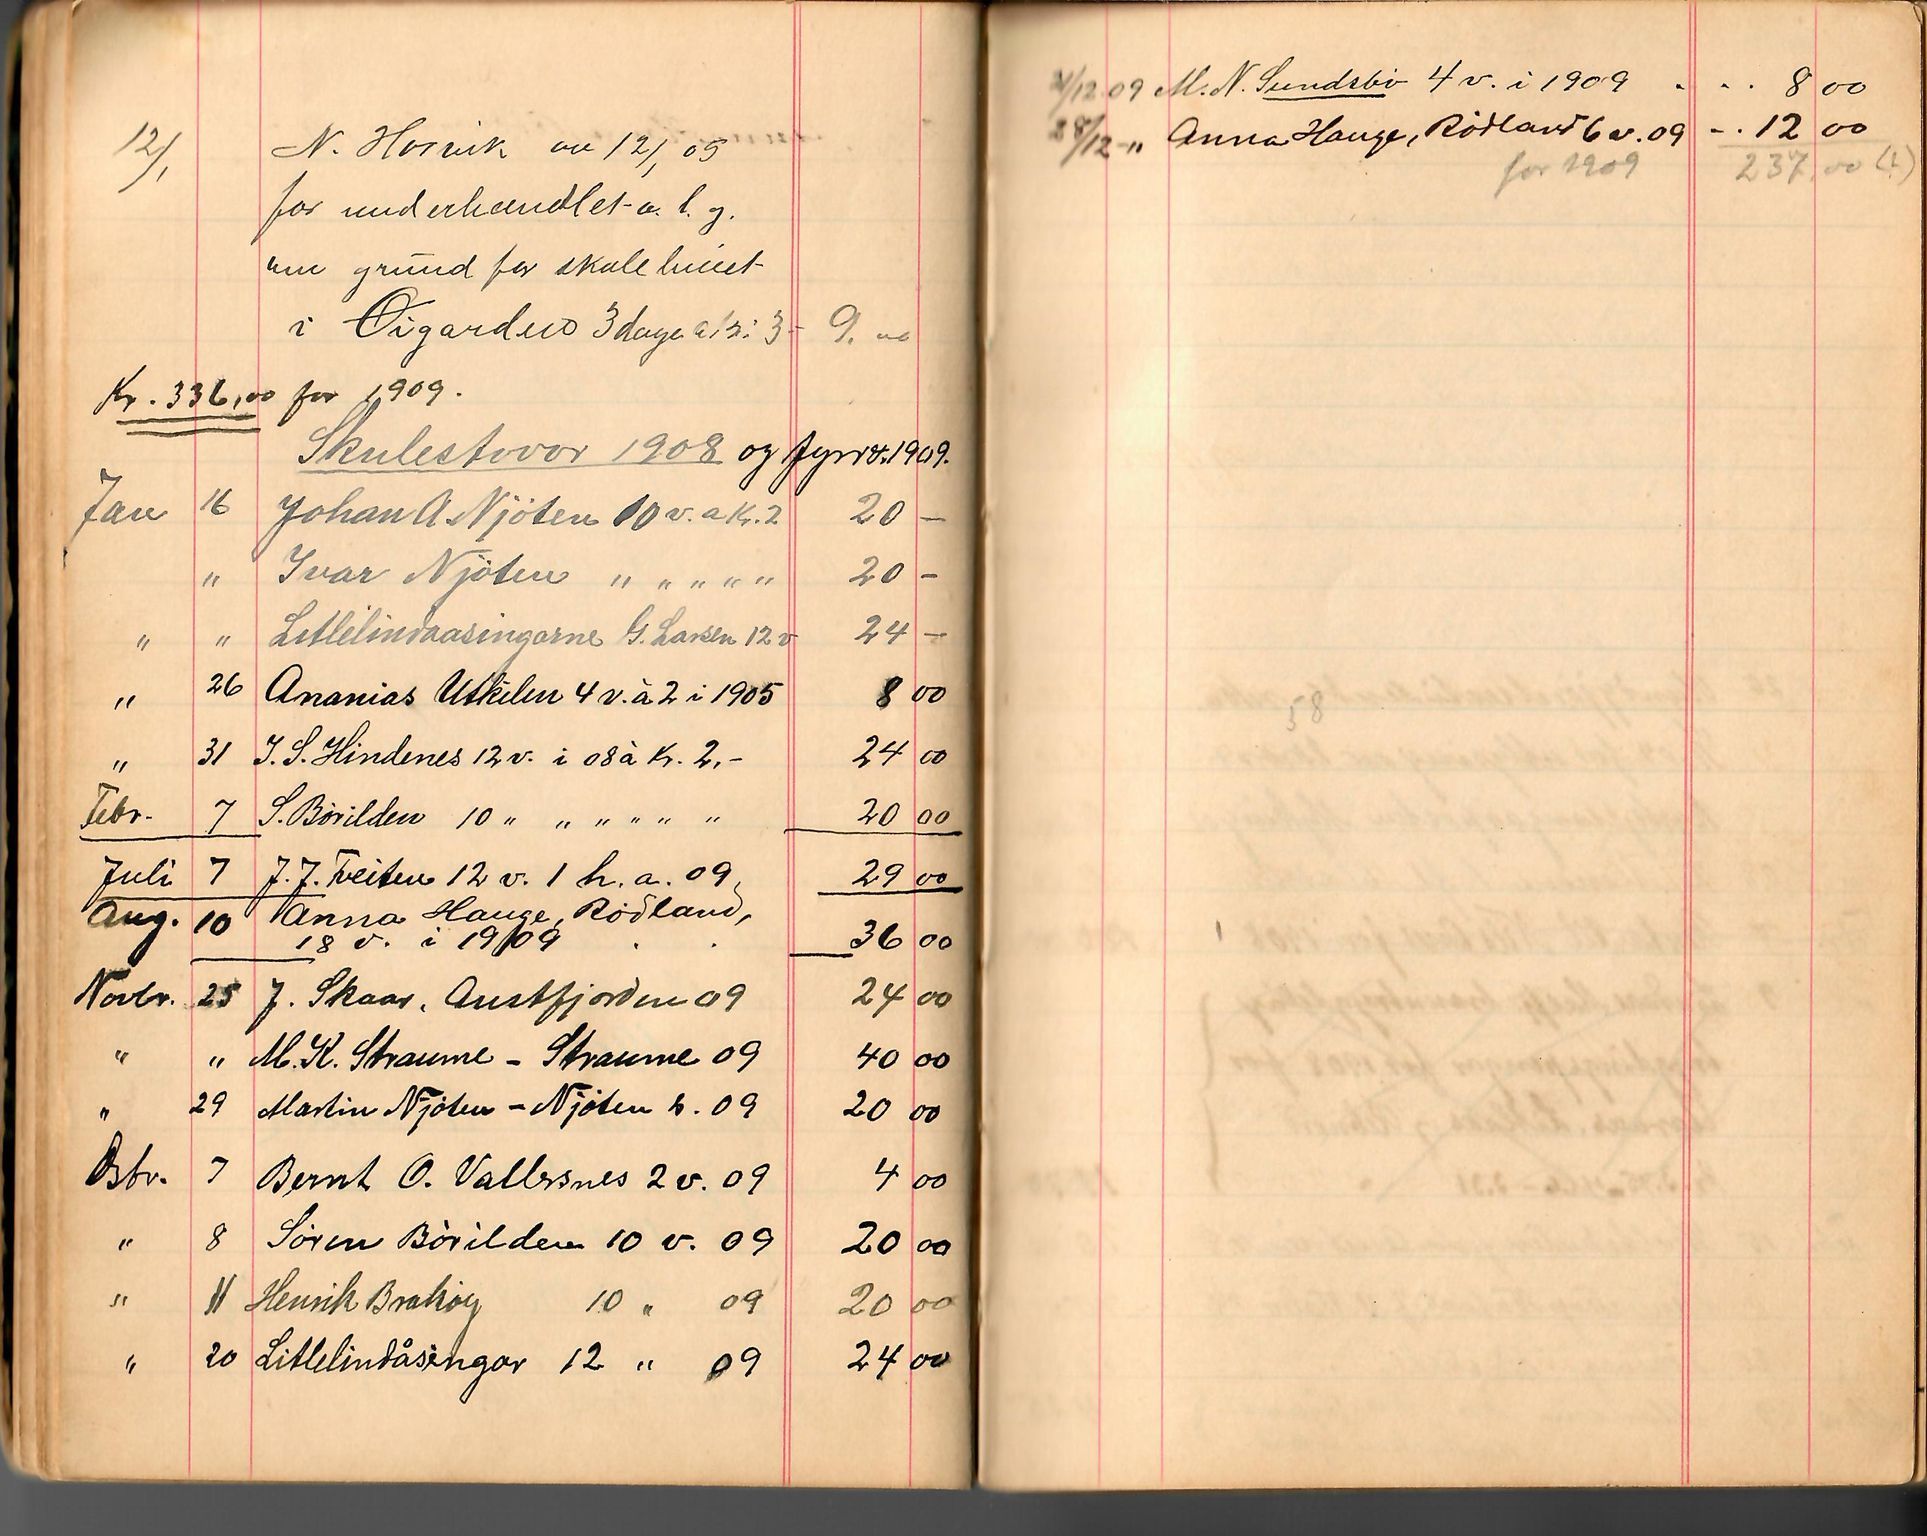 12/1 N. Hosvik av 12/1 05
for underhandlet a. l. g.
um grund for skulehuset
i Øigarden 3 dage a kr. 3- 9.00
Kr. 336,00 for 1909.
Skulestovor 1908 og fyrr o. 1909.
Jan 16 Johan A Njöten 10 v. a Kr. 2 20 –
" Ivar Njöten " " " " " 20 –
" " Litlelindaasingarne G. Larsen 12 v 24 –
" 26 Ananias Utkilen 4 v. à 2 i 1905 8 00
" 31 I. S. Hindenes 12 v. i 08 à Kr. 2,- 24 00
Febr. 7 S. Børilden 10 " " " " " " 20 00
Juli 7 J. J. Tveiten 12 v. 1 h. a. 09, 29 00
Aug. 10 Anna Hauge, Rødland,
18 v. i 1909 . . 36 00
Novbr. 25 J. Skaar, Austfjorden 09 24 00
" " M. K. Straume – Straume 09 40 00
" 29 Martin Njøten – Njøten k. 09 20 00
Dsbr. 7 Bernt O. Vallersnes 2 v. 09 4 00
" 8 Sören Börilden 10 v. 09 20 00
" 11 Henrik Brakøy 10 " 09 20 00
" 20 Litlelindåsingar 12 " 09 24 00
21/12 09 M. N. Sundsbö 4 v. i 1909 . . . 8 00
28/12 " Anna Hauge, Rödland 6 v. 09 - . 12 00
for 1909 237,00 (!)
58